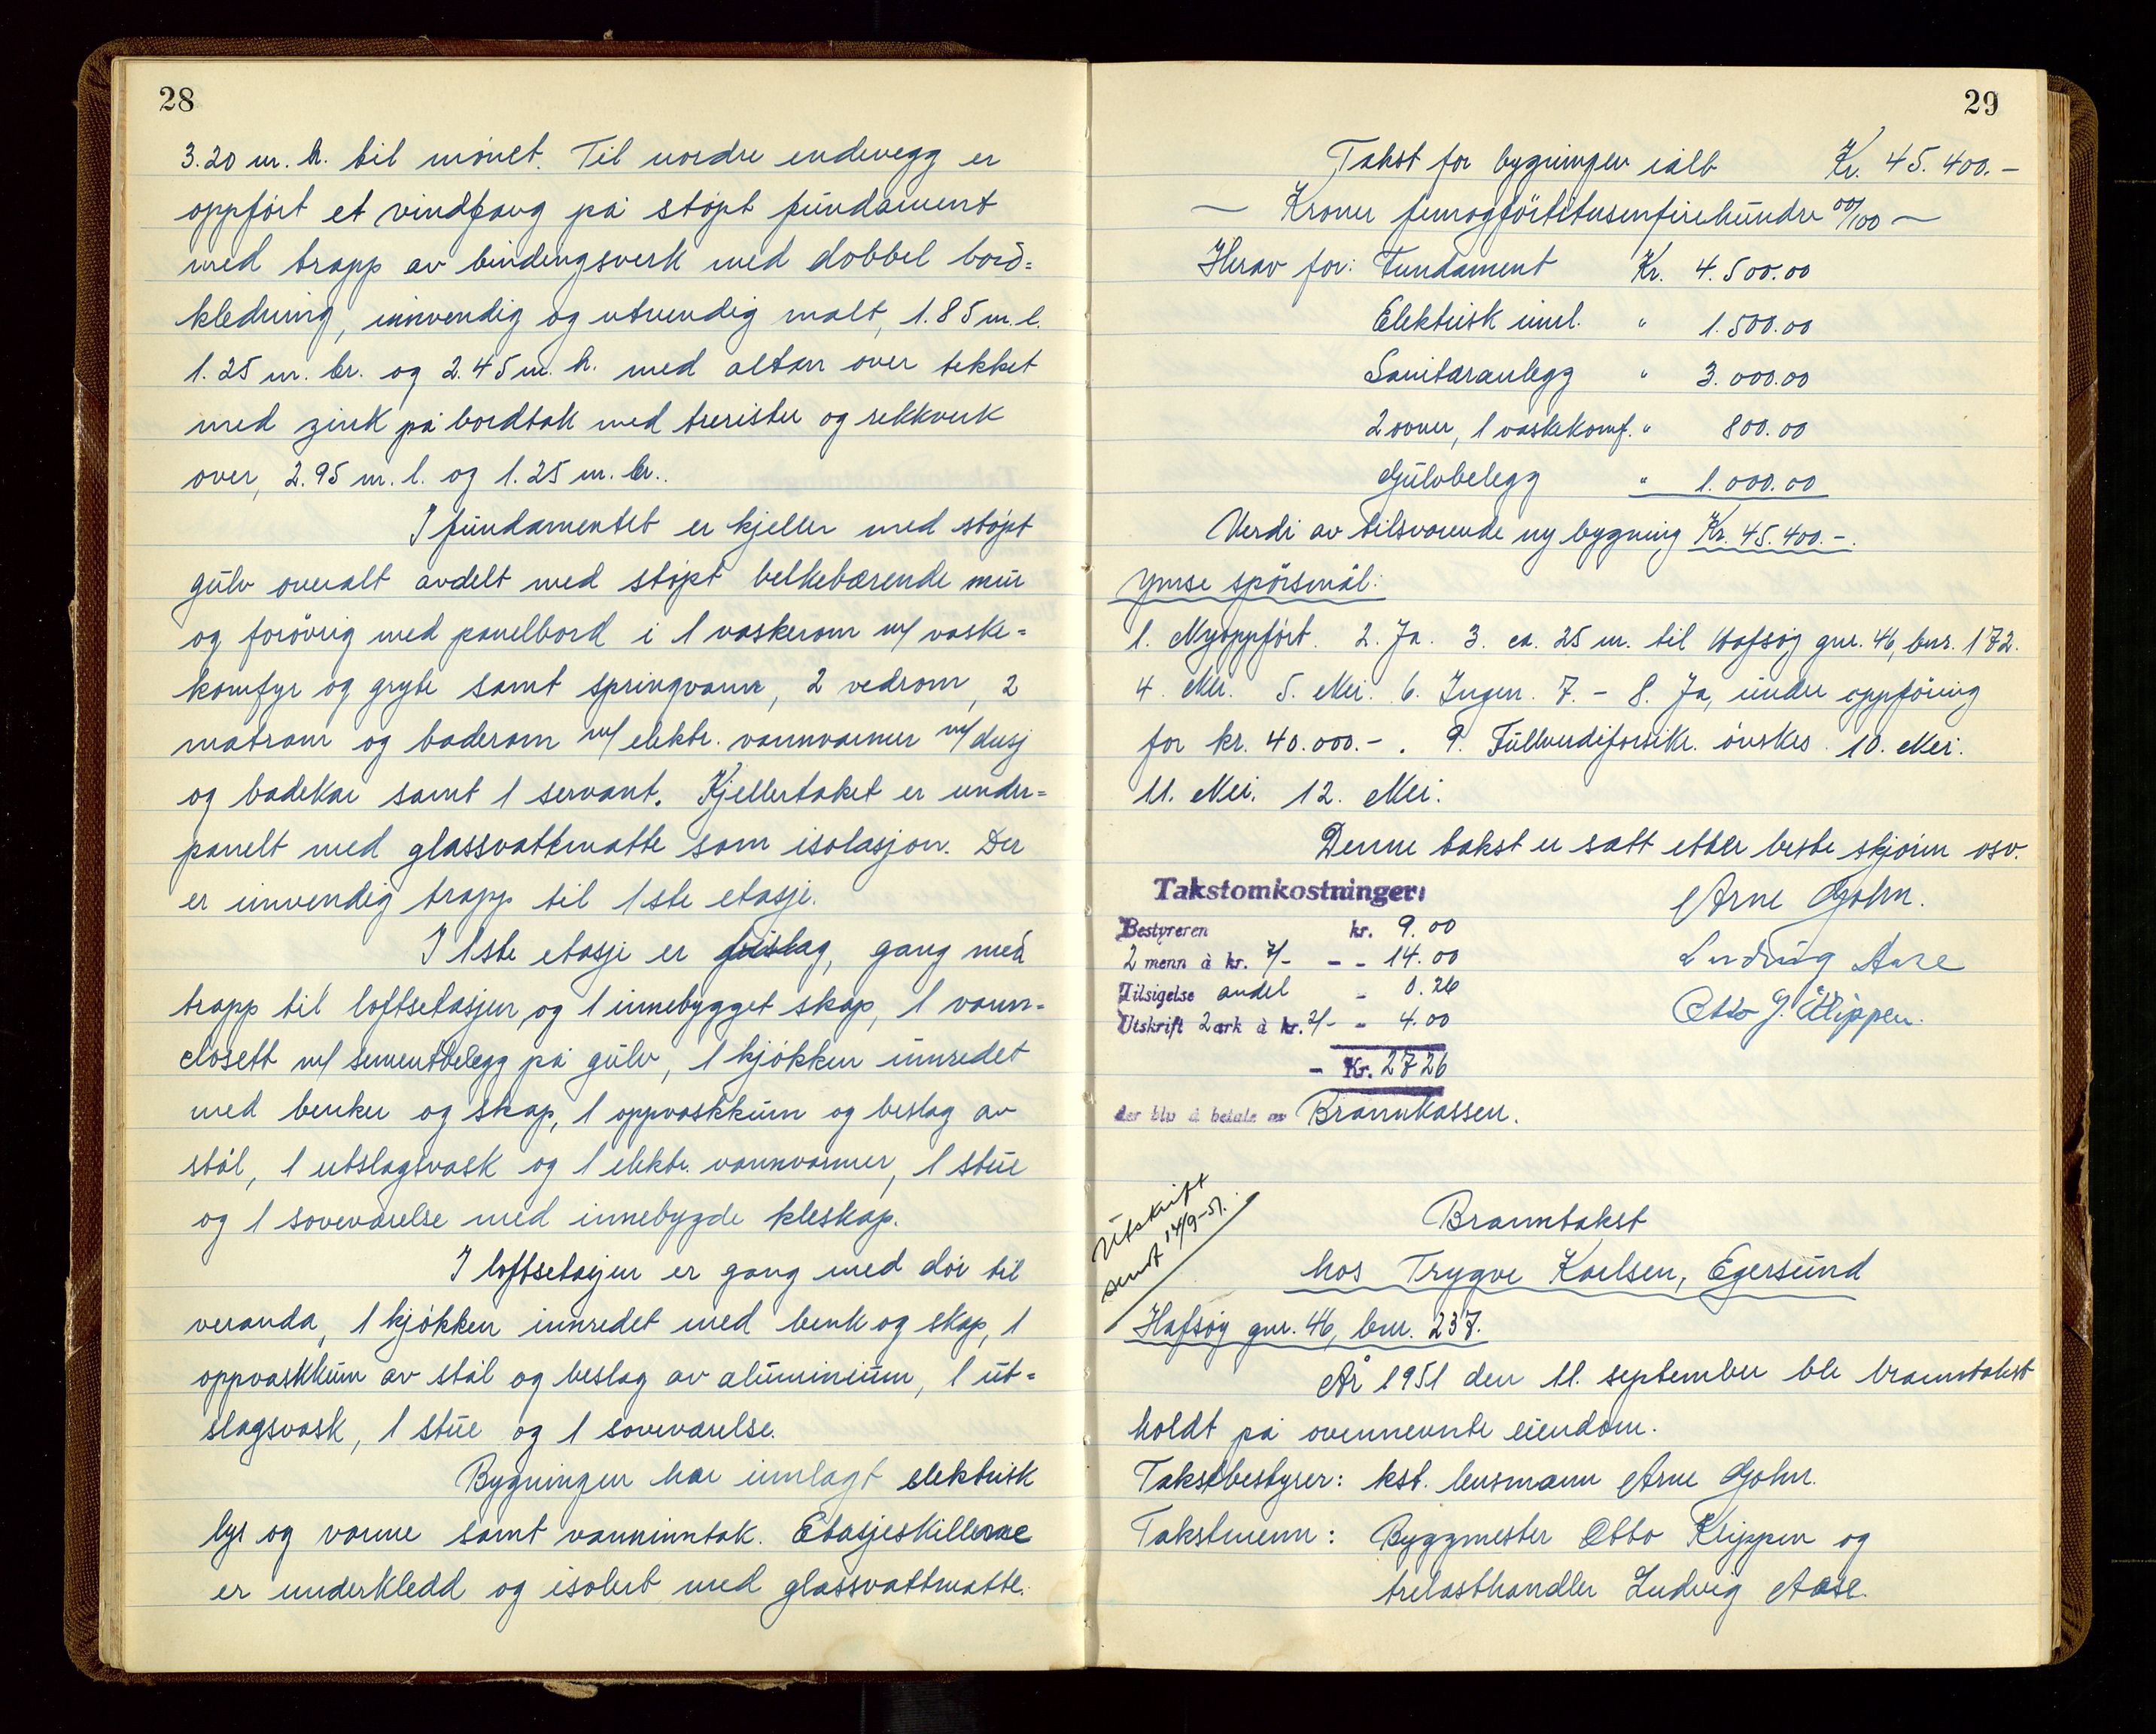 28
3.20 m. h. til mønet. Til nordre endevegg er
oppført et vindfang på støpt fundament
med trapp av bindingsverk med dobbel bord=
kledning, innvendig og utvendig malt, 1.85 m. l.
1.25 m. br. og 2.45 m. h. med altan over tekket
med zink på bordtak med trerister og rekkverk
over, 2.95 m. l. og 1.25 m. br..
I fundamentet er kjeller med støpt
gulv overalt avdelt med støpt belkebærende mur
og forøvrig med panelbord i 1 vaskerom m/ vaske=
komfyr og gryte samt springvann, 2 vedrom, 2
matrom og baderom m/ elektr. vannvarmer m/ dusj
og badekar samt 1 servant. Kjellertaket er under=
panelt med glassvattmatte som isolasjon. Der
er innvendig trapp til 1ste etasje.
I 1ste etasje er, gang med
trapp til loftsetasjen og 1 innebygget skap, 1 vann=
closett m/ sementbelegg på gulv, 1 kjøkken innredet
med benker og skap, 1 oppvaskkum og beslag av
stål, 1 utslagsvask og 1 elektr. vannvarmer, 1 stue
og 1 soveværelse med innebygde kleskap.
I loftsetasjen er gang med dør til
veranda, 1 kjøkken innredet med benk og skap, 1
oppvaskkum av stål og beslag av aluminium, 1 ut=
slagsvask, 1 stue og 1 soveværelse.
Bygningen har innlagt elektrisk
lys og varme samt vanninntak. Etasjeskillerne
er underkledd og isolert med glassvattmatte.
29
Takst for bygningen ialt Kr. 45.400.-
— Kroner femogførtitusenfirehundre 00/100 —
Herav for: Fundament Kr. 4.500.00
Elektrisk innl. " 1.500.00
Sanitæranlegg " 3.000.00
2 ovner, 1 vaskekomf. " 800.00
Gulvbelegg " 1.000.00
Verdi av tilsvarende ny bygning Kr. 45.400.-.
Ymse spørsmål:
1. Nyoppført. 2. Ja. 3. ca. 25 m. til Hafsøy gnr. 46, bnr. 172.
4. Nei. 5. Nei. 6. Ingen. 7. - 8. Ja, under oppføring
for kr. 40.000.-. 9. Fullverdiforsikr. ønskes. 10. Nei.
11. Nei. 12. Nei.
Denne takst er satt etter beste skjønn osv.
Takstomkostninger:
Arne Gohn.
Bestyreren kr. 9.00
2 menn à kr. 7/- - - 14.00
Ludvig Aase
Tilsigelse andel - 0.26
Otto J. Klippen.
Utskrift 2 ark à kr. 2/- - 4.00
- Kr. 27 26
der blir å betale av Brannkassen.
Utskrift
sendt 14/9-51.
Branntakst
hos Trygve Karlsen, Egersund
Hafsøy gnr. 46, bnr. 237.
År 1951 den 11. september ble branntakst
holdt på ovennevnte eiendom.
Takstbestyrer: kst. lensmann Arne Gohn.
Takstmenn: Byggmester Otto Klippen og
trelasthandler Ludvig Aase.